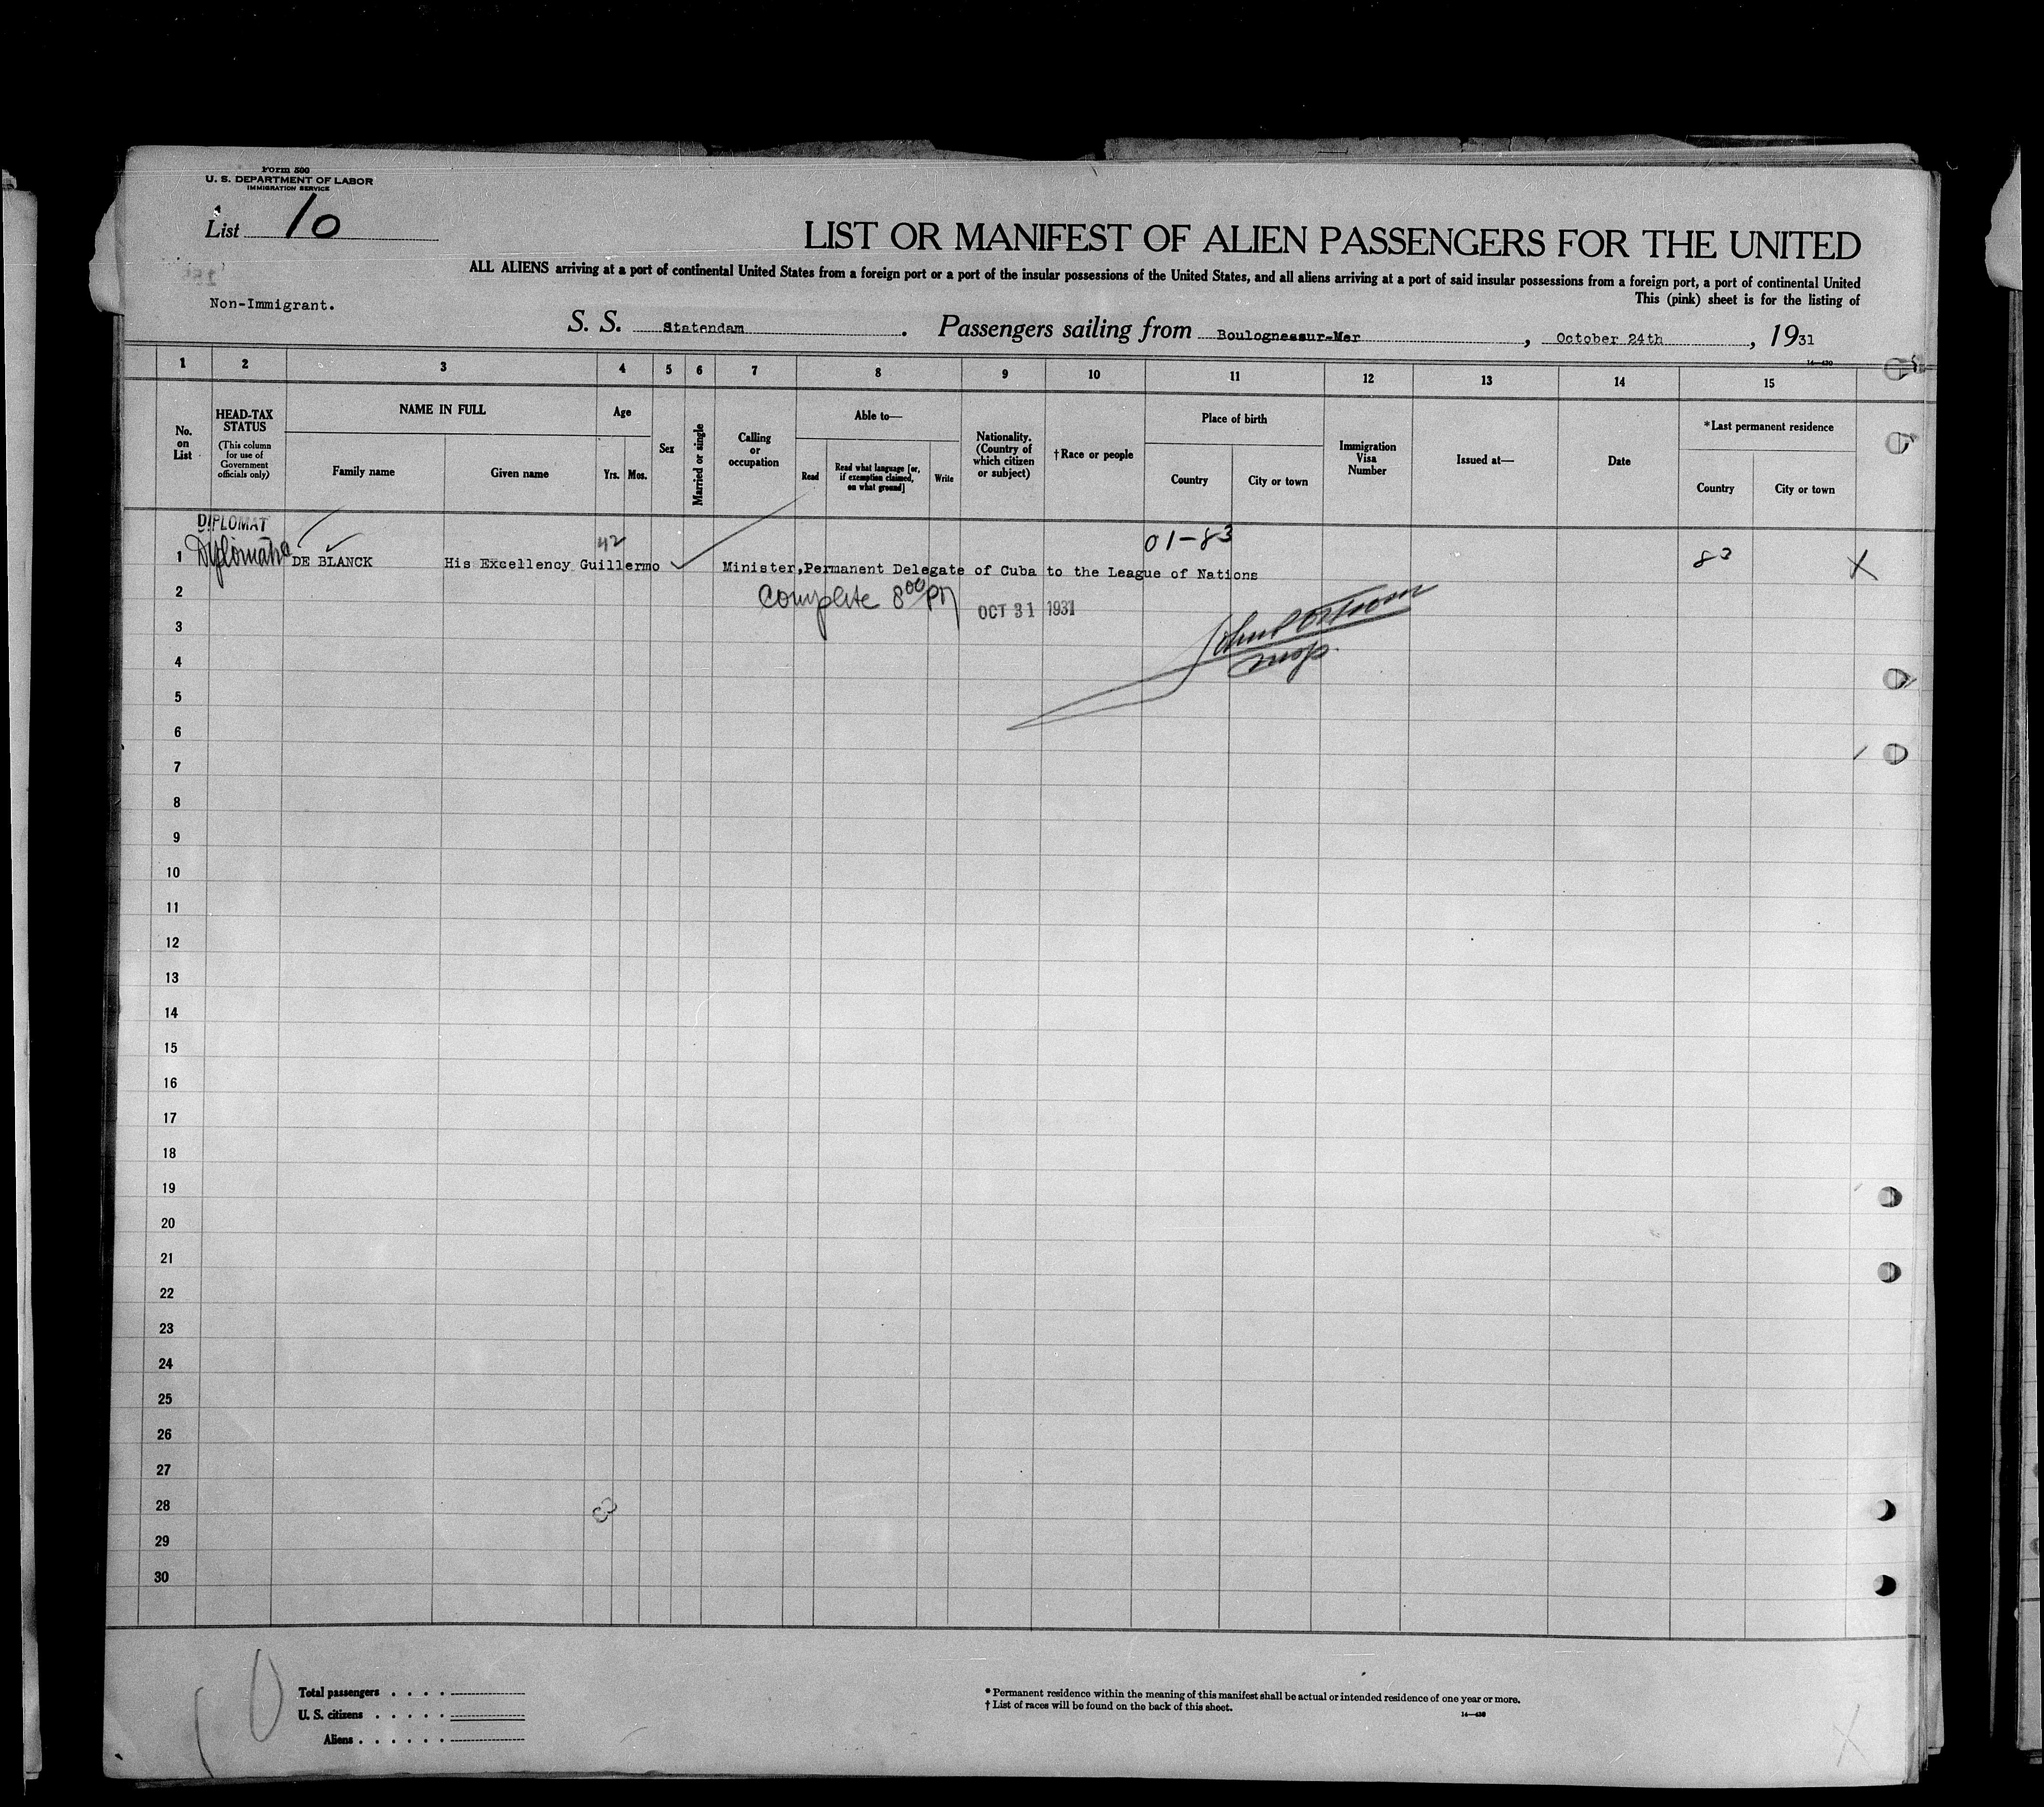 Form 500
U. S. DEPARTMENT OF LABOR
IMMIGRATION SERVICE
List 10
LIST OR MANIFEST OF ALIEN PASSENGERS FOR THE UNITED
ALL ALIENS arriving at a port of continental United States from a foreign port or a port of the insular possessions of the United States, and all aliens arriving at a port of said insular possessions from a foreign port, a port of continental United
This (pink) sheet is for the listing of
Non-Immigrant.
S. S. Statendam. Passengers sailing from Boulognessur-Mer, October 24th, 1931
14—430
1 2 3 4 5 6 7 8 9 10 11 12 13 14 15
No. on List
HEAD-TAX STATUS
(This column for use of Government officials only)
NAME IN FULL
Family name
Given name
Age
Yrs. Mos.
Sex
Married or single
Calling or occupation
Able to—
Read
Read what language [or, if exemption claimed, on what ground]
Write
Nationality. (Country of which citizen or subject)
†Race or people
Place of birth
Country
City or town
Immigration Visa Number
Issued at—
Date
*Last permanent residence
Country
City or town
DIPLOMAT
42
01-83
1 DE BLANCK His Excellency Guillermo Minister,Permanent Delegate of Cuba to the League of Nations 83 X
2 Complete 8 00 PM OCT 31 1931
3
4
5
6
7
8
9
10
11
12
13
14
15
16
17
18
19
20
21
22
23
24
25
26
27
28
29
30
Total passengers . . . .
U. S. citizens . . . . .
Aliens . . . . . .
* Permanent residence within the meaning of this manifest shall be actual or intended residence of one year or more.
† List of races will be found on the back of this sheet.
14—430